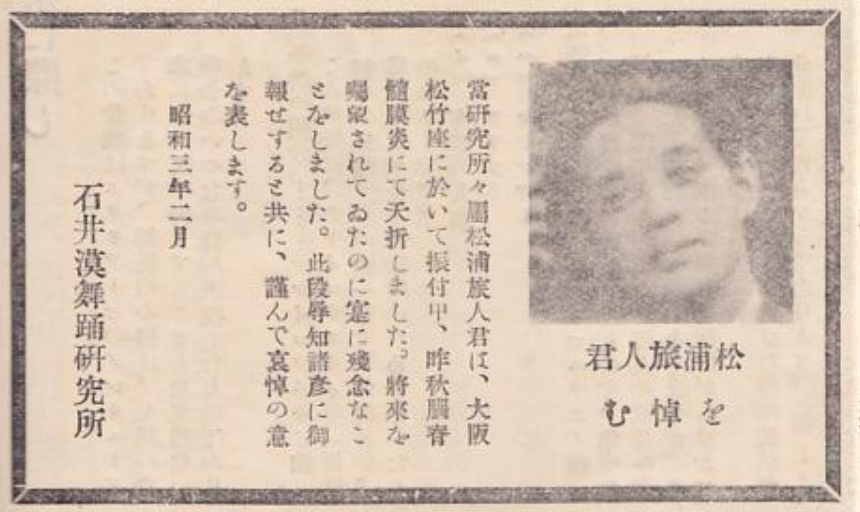 松浦旅人君
を悼む
當研究所々屬松浦旅人君は、大阪
松竹座に於いて振付中、昨秋腦脊
髓膜炎にて夭折しました。將來を
囑望されてゐたのに寔に殘念なこ
とをしました。此段辱知諸彥に御
報せすると共に、謹んで哀悼の意
を表します。
昭和三年二月
石井漠舞踊硏究所